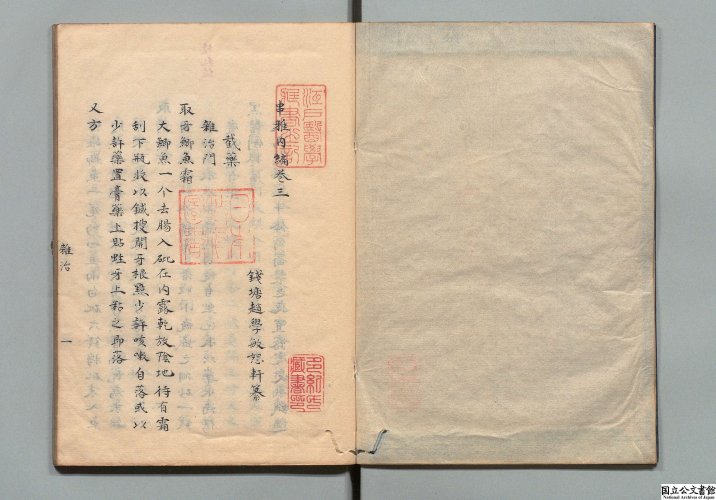 串雅內編卷三
錢塘趙學敏恕軒纂
截藥
雜治門
取牙鯽魚霜
大鯽魚一个去腸入砒在内露乾放陰地待有霜
刮下瓶收以鍼搜開牙根點少許咳嗽自落或以
少許藥置膏藥上點牙上黏之即落
又方
雜治
一
江戶醫學
藏書之記
国立公文書館
National Archives of Japan